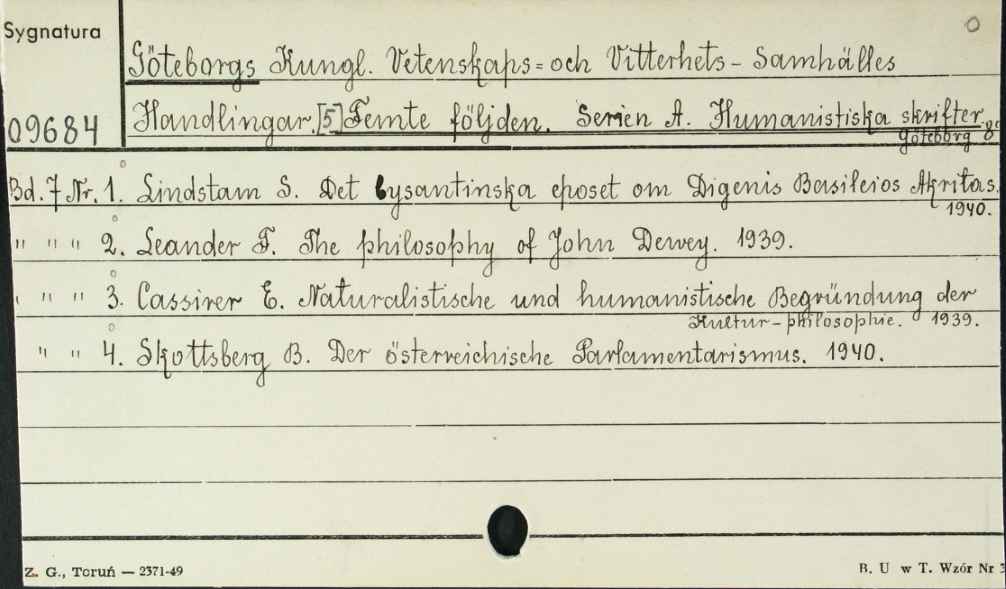 Sygnatura
Göteborgs Kungl. Vetenskaps= och Vitterhets - Samhälles
09684
Handlingar. [5] Femte följden. Serien A. Humanistiska skrifter.
Göteborg 8°
Bd. 7 Nr. 1. Lindstam S. Det bysantinska eposet om Digenis Basileios Akritas.
1940.
" " " 2. Leander F. The philosophy of John Dewey. 1939.
" " " 3. Cassirer E. Naturalistische und humanistische Begründung der
Kultur-philosophie. 1939.
" " 4. Skottsberg B. Der österreichische Parlamentarismus. 1940.
Z. G., Toruń — 2371-49
B. U w T. Wzór Nr 3